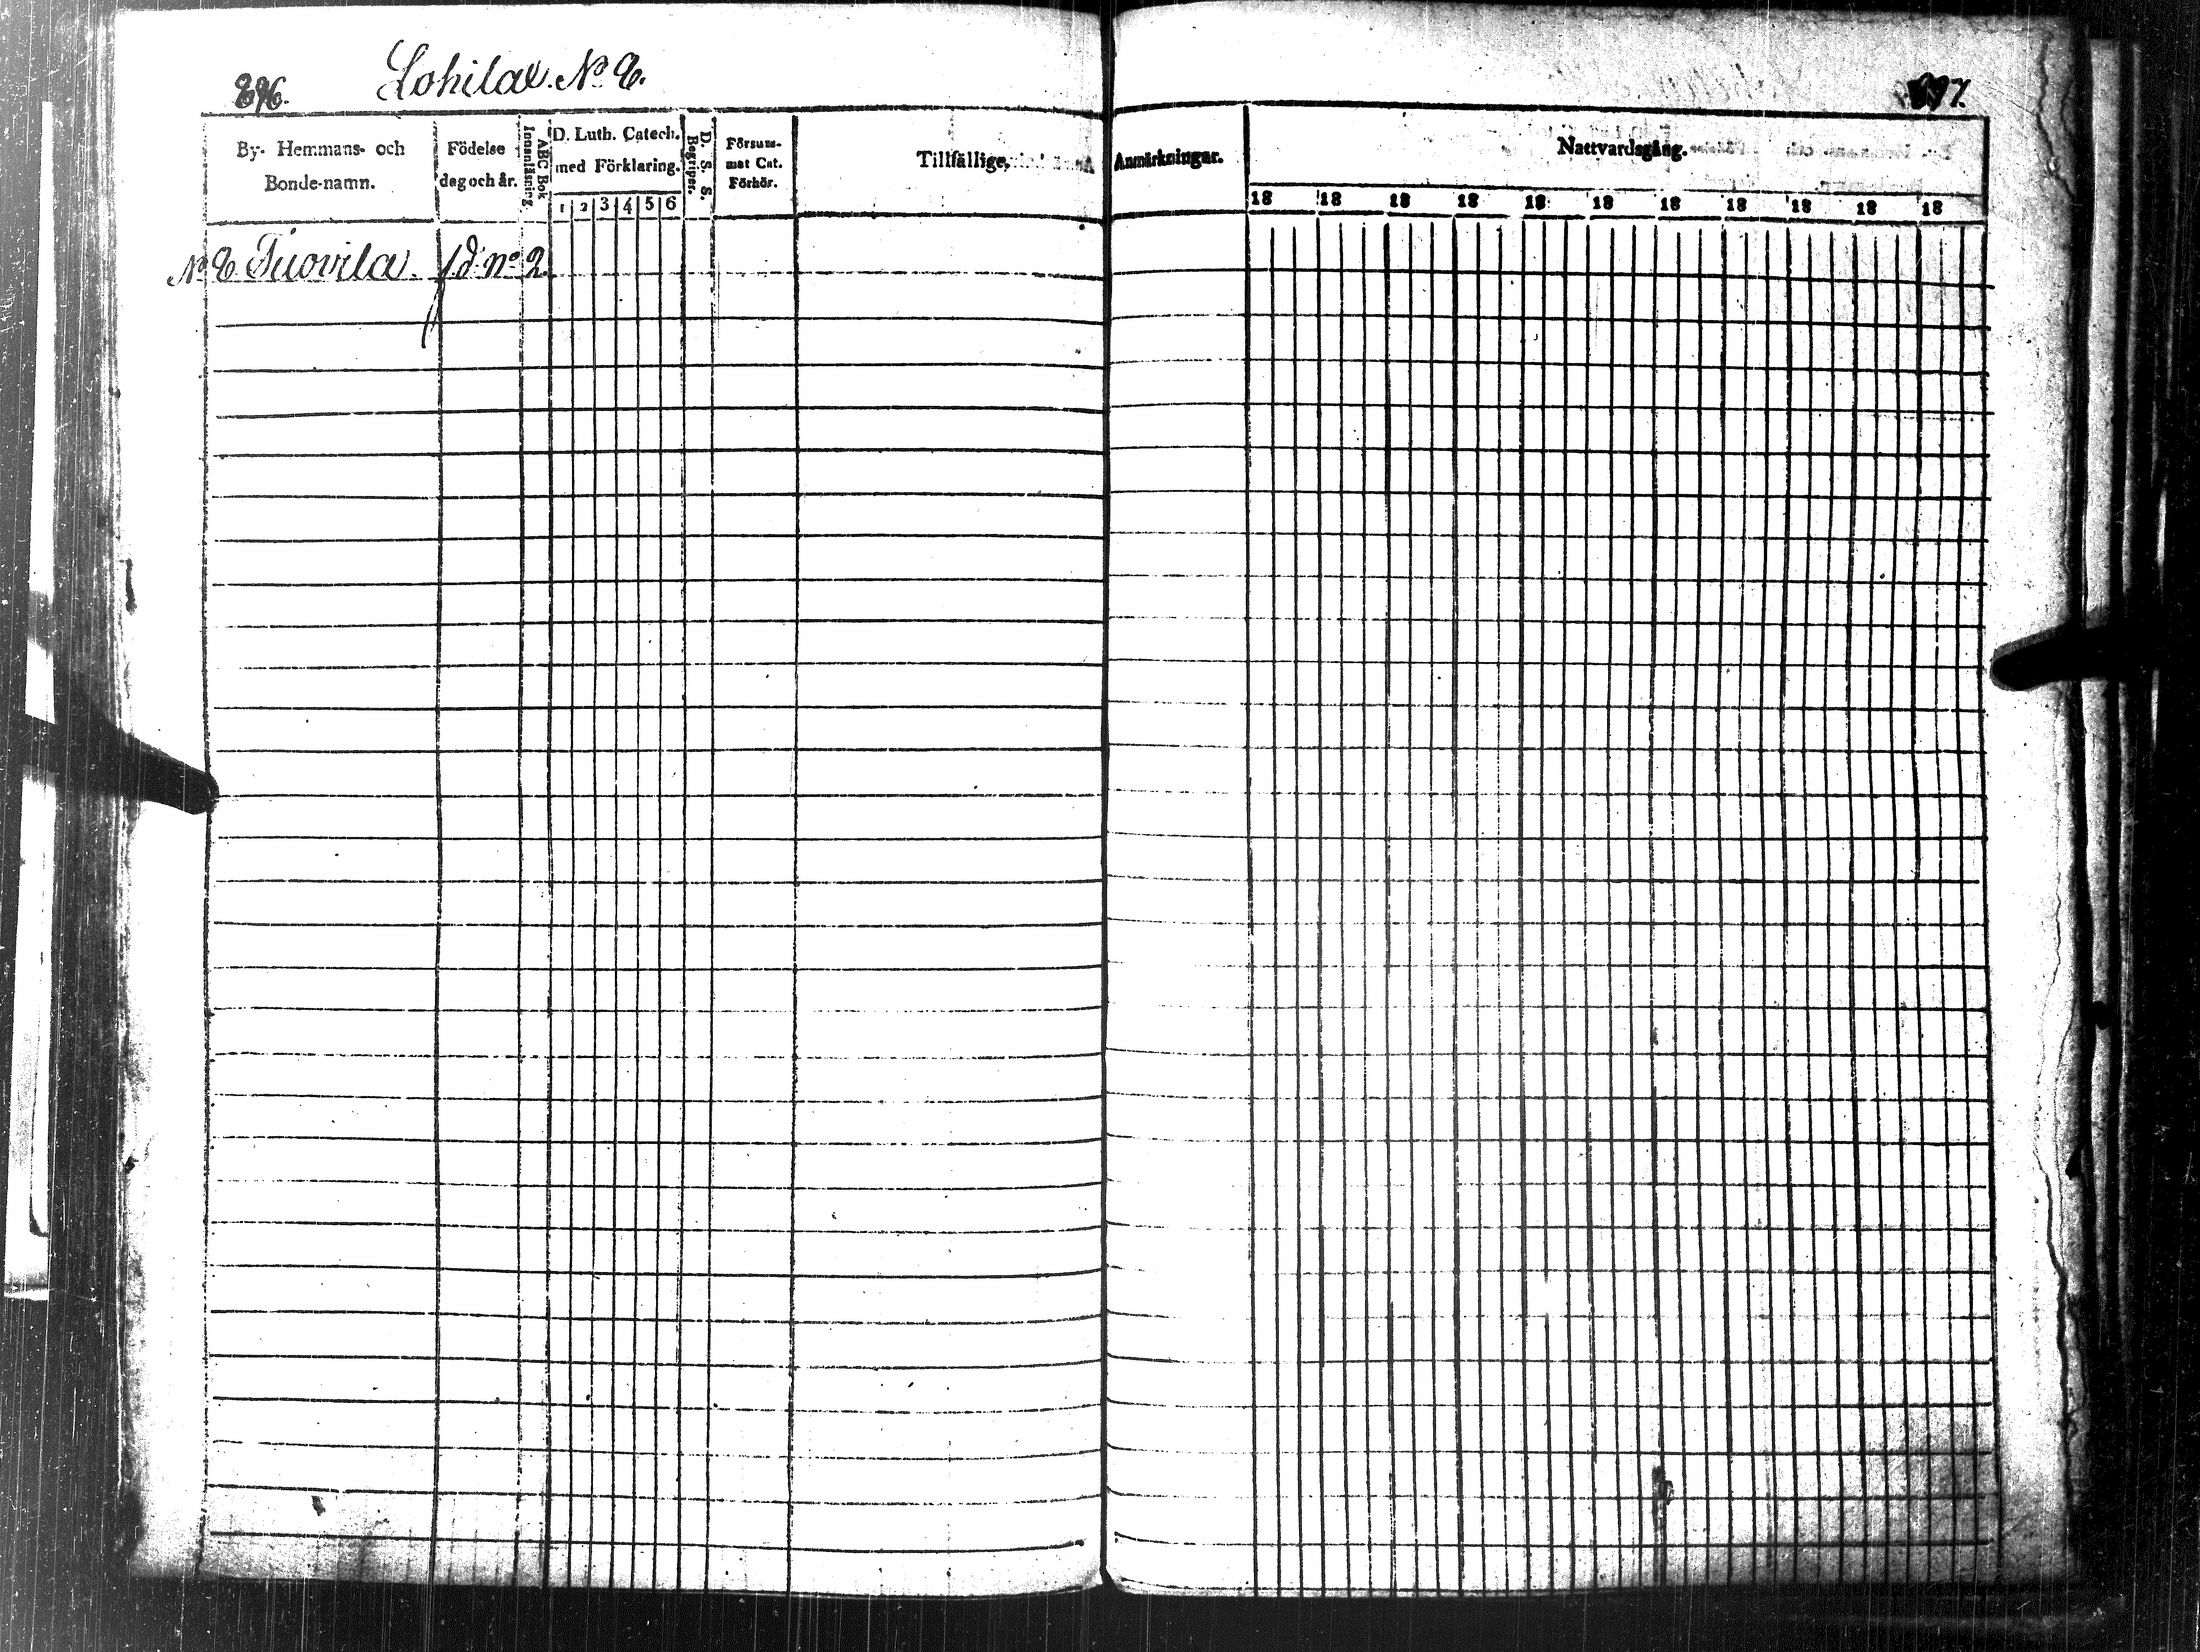 896.
Lohilax No 8.
897.
By- Hemmans- och
Bonde-namn.
Födelse
dag och år.
Innanläsning.
ABC Bok
D. Luth. Catech.
med Förklaring.
1 2 3 4 5 6
D. S. S.
Begriper.
Försum-
mat Cat.
Förhör.
Tillfällige
Anmärkningar.
Nattvardsgång.
18 18 18 18 18 18 18 18 18 18 18
No 8 Tuovila. fd no 2